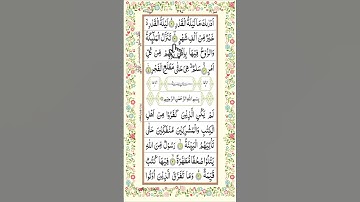 اَدْرٰىكَ مَا لَيْلَةُ الْقَدْرِ ۞ لَيْلَةُ الْقَدْرِ ۙ
خَيْرٌ مِّنْ اَلْفِ شَهْرٍ ۞ تَنَزَّلُ الْمَلٰٓئِكَةُ
وَالرُّوْحُ فِيْهَا بِاِذْنِ رَبِّهِمْ مِّنْ كُلِّ
اَمْرٍ ۞ سَلٰمٌ هِيَ حَتّٰى مَطْلَعِ الْفَجْرِ ۞
بِسْمِ اللّٰهِ الرَّحْمٰنِ الرَّحِيْمِ
لَمْ يَكُنِ الَّذِيْنَ كَفَرُوْا مِنْ اَهْلِ
الْكِتٰبِ وَالْمُشْرِكِيْنَ مُنْفَكِّيْنَ حَتّٰى
تَاْتِيَهُمُ الْبَيِّنَةُ ۞ رَسُوْلٌ مِّنَ اللّٰهِ
يَتْلُوْا صُحُفًا مُّطَهَّرَةً ۞ فِيْهَا كُتُبٌ
قَيِّمَةٌ ۞ وَمَا تَفَرَّقَ الَّذِيْنَ اُوْتُوا